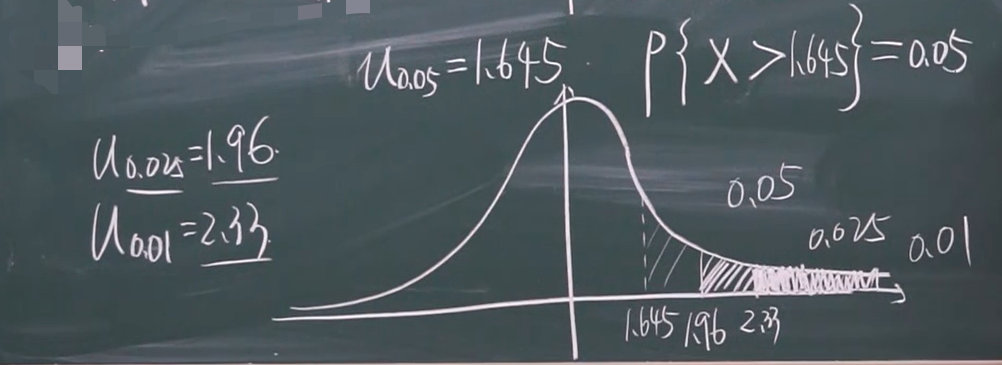 u0.05=1.645 P{X>1.645}=0.05
u0.025=1.96
u0.01=2.33
0.05
0.025
0.01
1.645 1.96 2.33